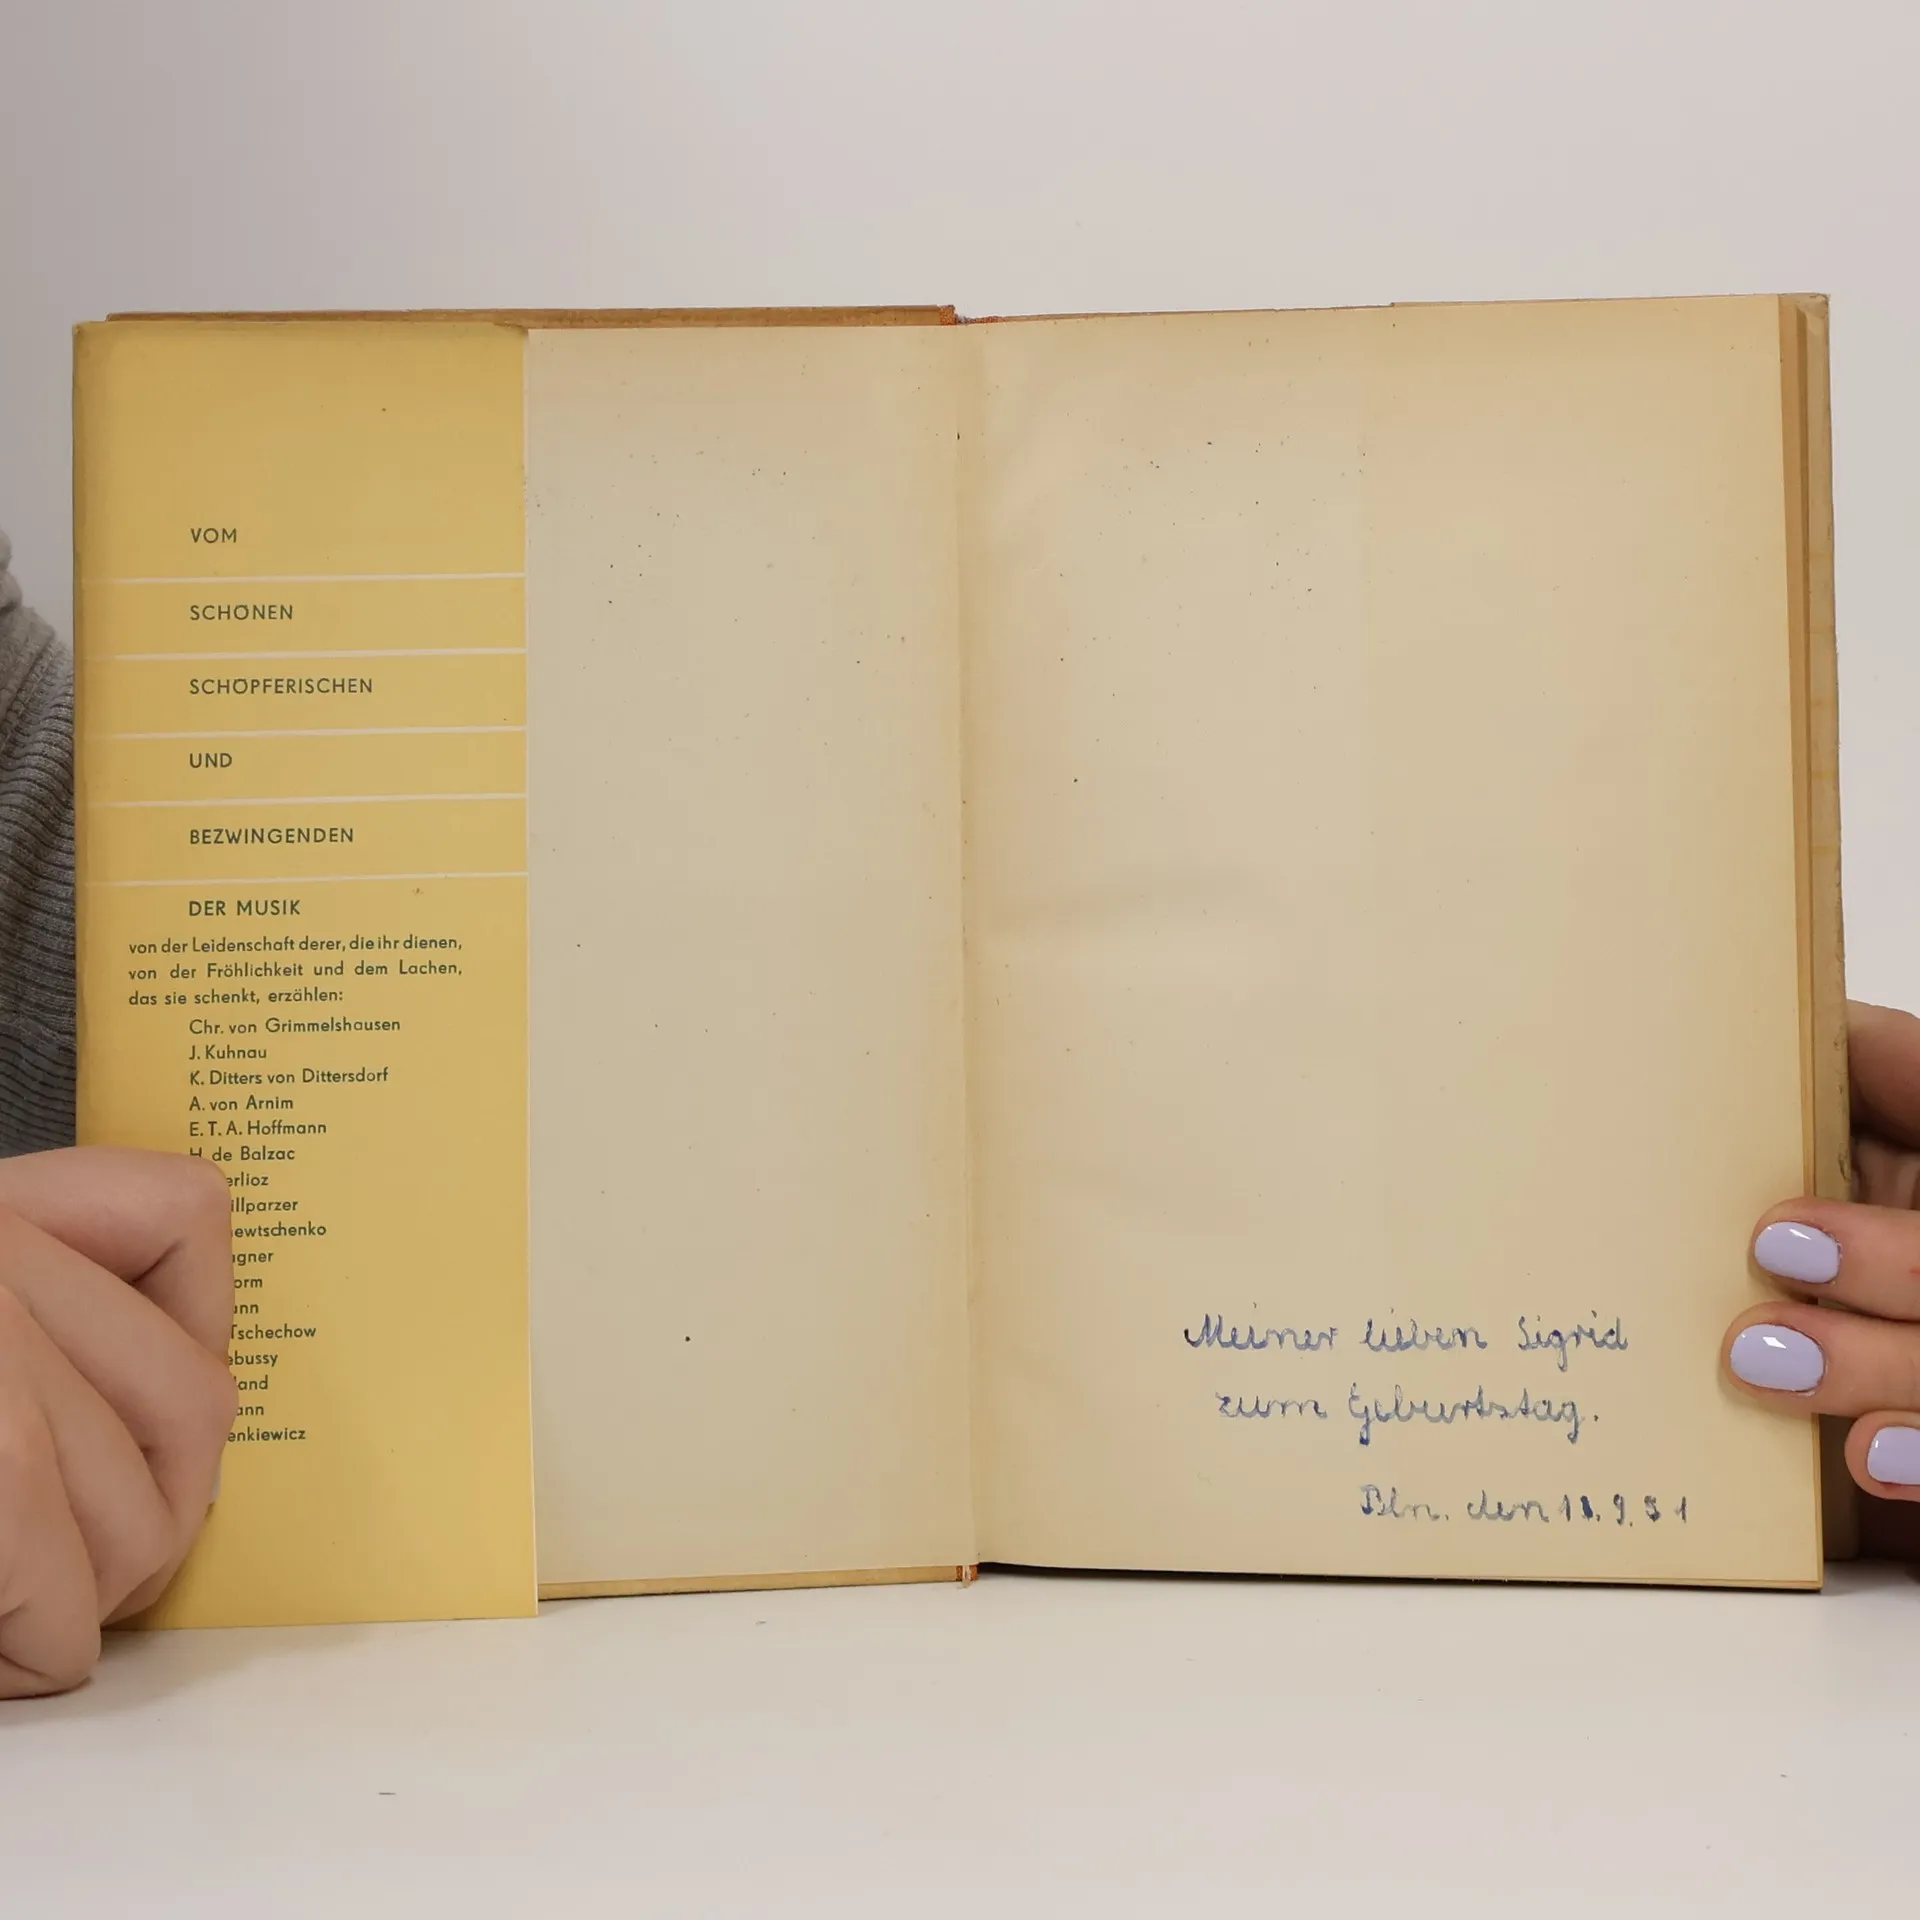 VOM
SCHÖNEN
SCHÖPFERISCHEN
UND
BEZWINGENDEN
DER MUSIK
von der Leidenschaft derer, die ihr dienen,
von der Fröhlichkeit und dem Lachen,
das sie schenkt, erzählen:
Chr. von Grimmelshausen
J. Kuhnau
K. Ditters von Dittersdorf
A. von Arnim
E. T. A. Hoffmann
H. de Balzac
erlioz
illparzer
ewtschenko
gner
orm
ann
Tschechow
ebussy
land
ann
enkiewicz
Meiner lieben Sigrid
zum Geburtstag.
Bln. den